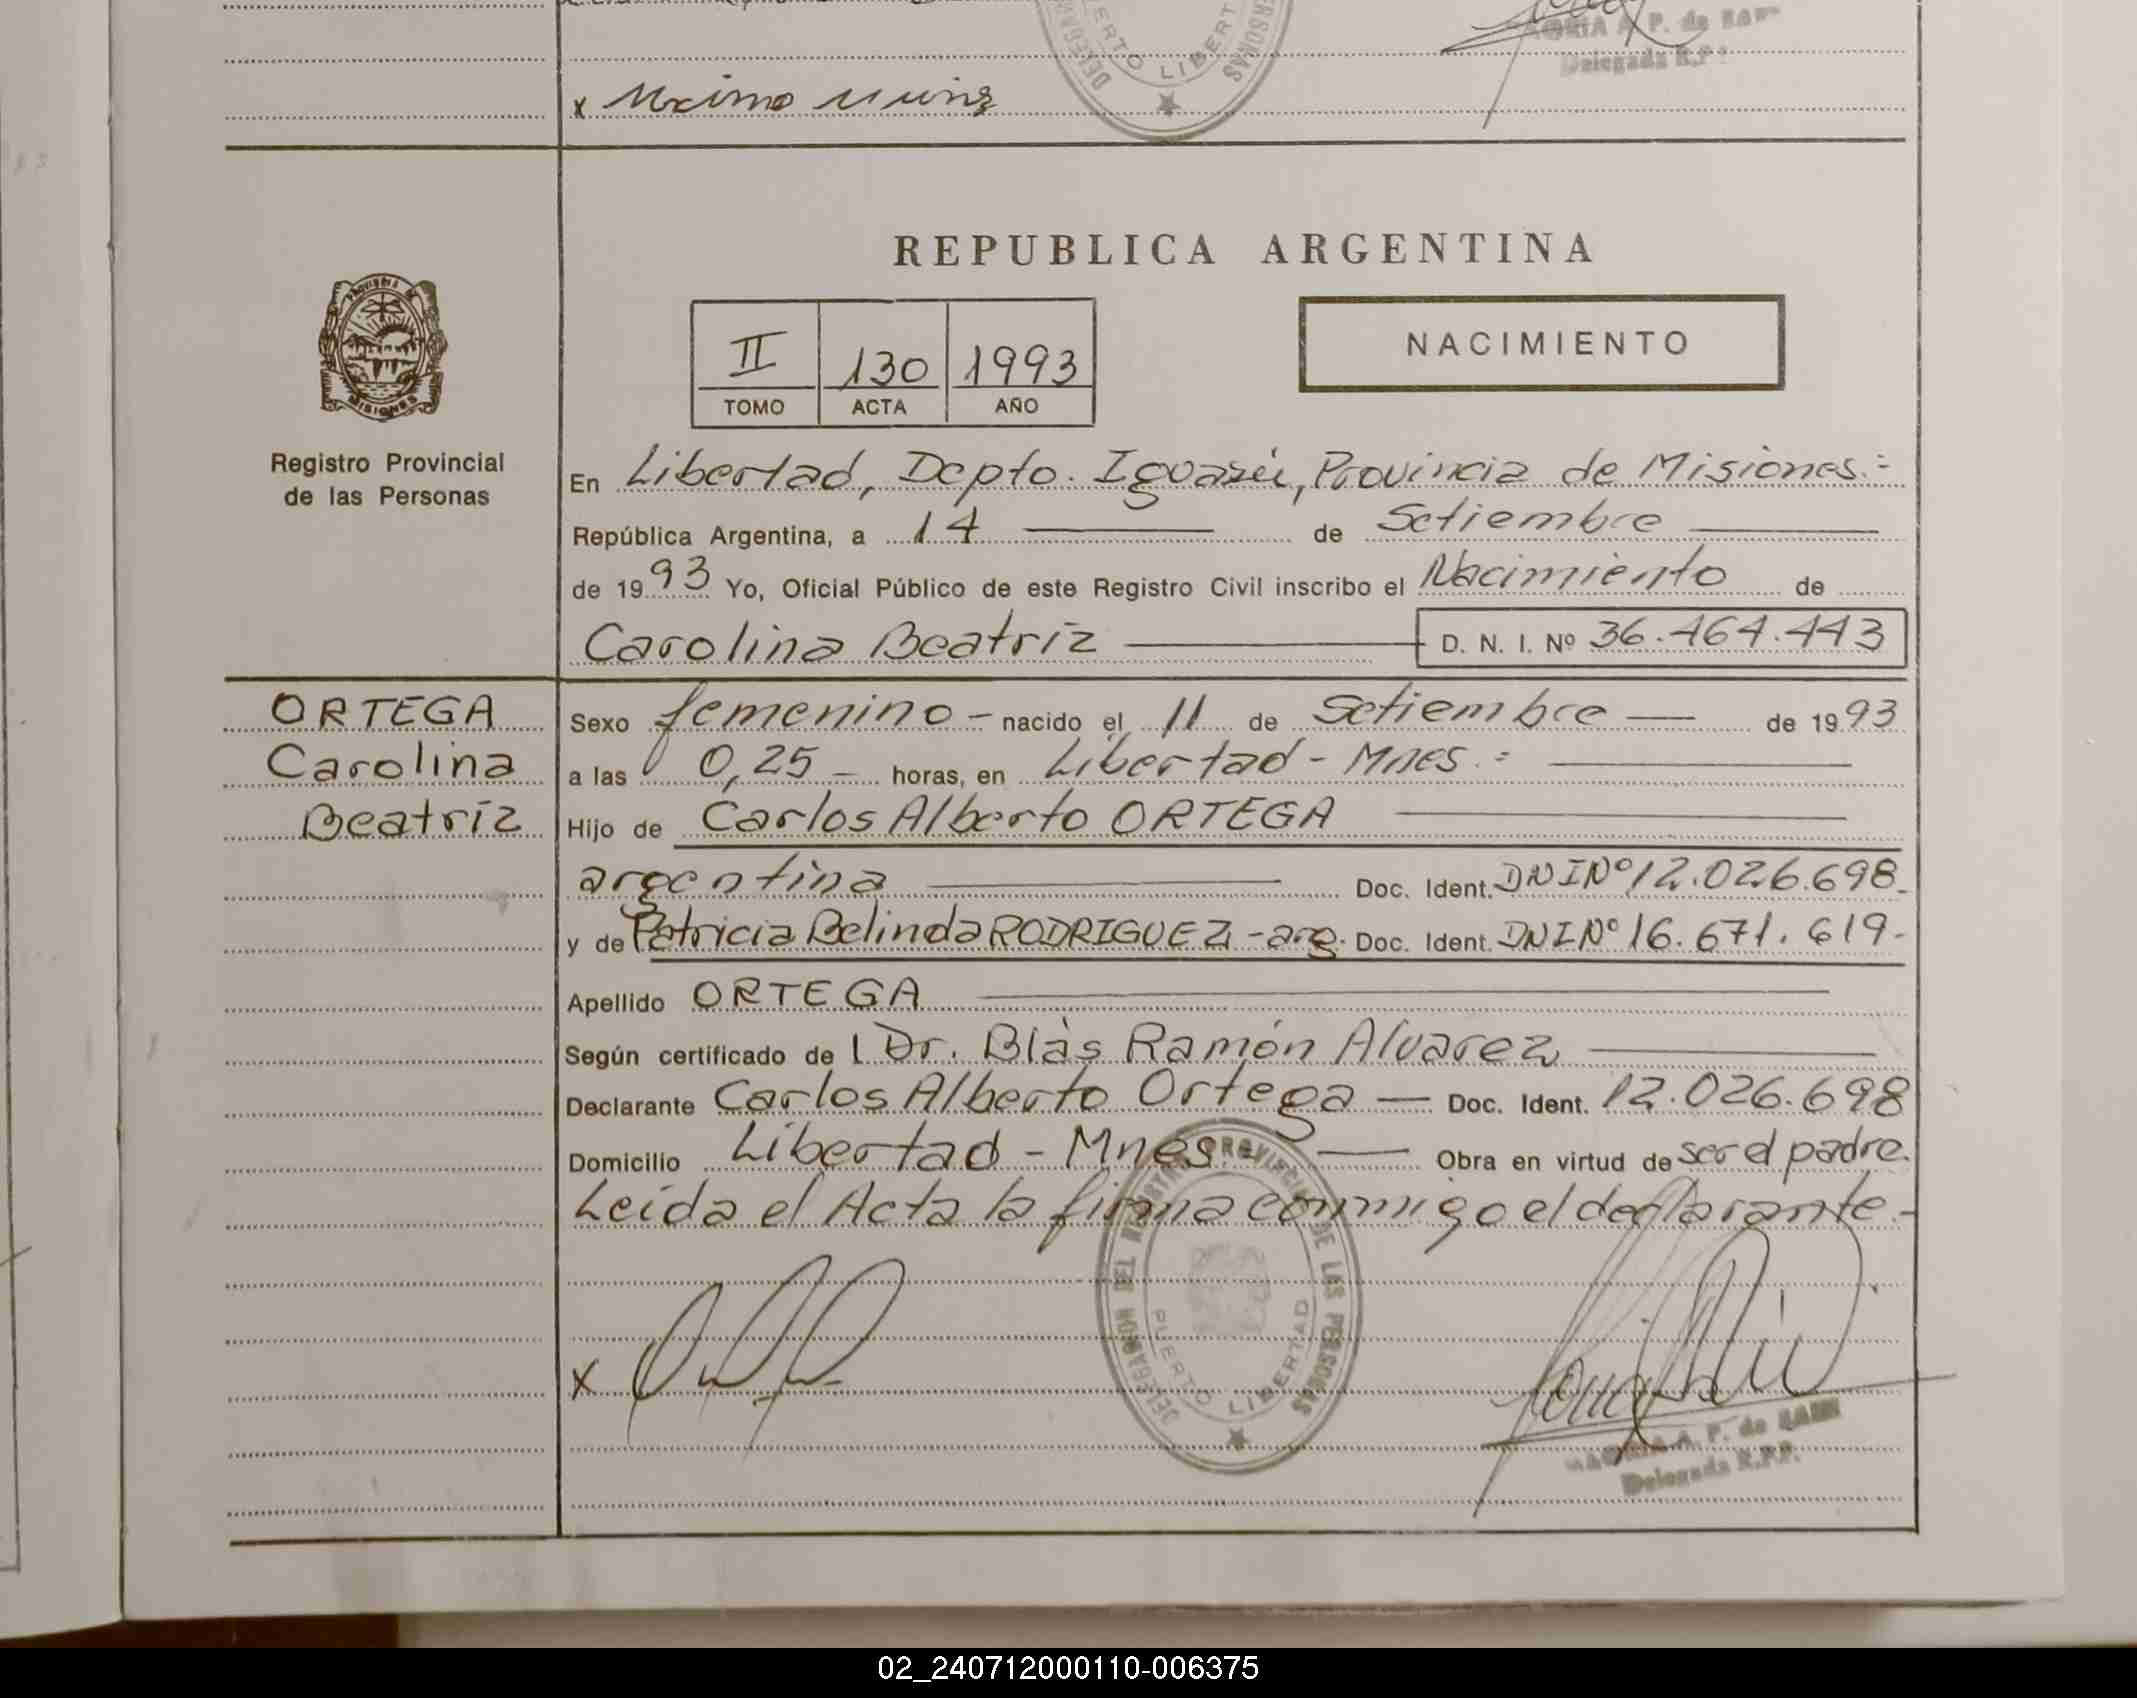 x Maximo Muniz
DELEGA PERSONAS
PUERTO LIBERTAD
A. P. de
Delegada R.P.
REPUBLICA ARGENTINA
PROVINCIA DE
MISIONES
II 130 1993
TOMO ACTA AÑO
NACIMIENTO
Registro Provincial
de las Personas
En Libertad, Depto. Iguazú, Provincia de Misiones.=
República Argentina, a 14 de Setiembre
de 1993 Yo, Oficial Público de este Registro Civil inscribo el Nacimiento de
Carolina Beatríz D. N. I. Nº 36.464.443
ORTEGA
Carolina
Beatríz
Sexo femenino - nacido el 11 de Setiembre de 1993
a las 0,25 - horas, en Libertad - Mnes. =
Hijo de Carlos Alberto ORTEGA
argentina Doc. Ident. DNI Nº 12.026.698.
y de Patricia Belinda RODRIGUEZ - arg. Doc. Ident. DNI Nº 16.671.619-
Apellido ORTEGA
Según certificado de l Dr. Blás Ramón Alvarez
Declarante Carlos Alberto Ortega — Doc. Ident. 12.026.698
Domicilio Libertad - Mnes. = Obra en virtud de ser el padre.
Leída el Acta la firma conmigo el declarante.-
DELEGACION DEL REGISTRO PROVINCIAL DE LAS PERSONAS
PUERTO LIBERTAD
x
A. P. de
Delegada R.P.P.
02_240712000110-006375